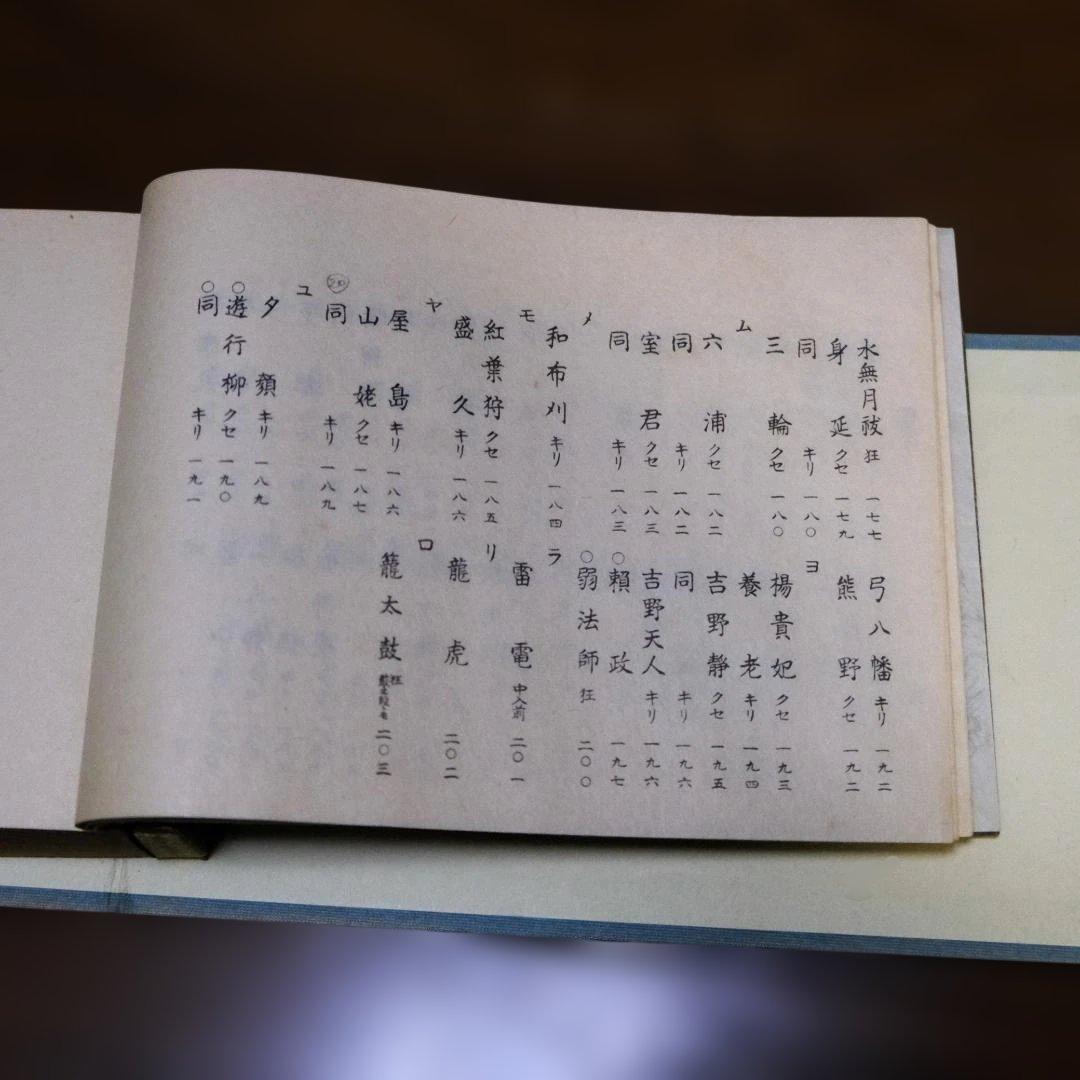 水無月祓 狂 一七七
身延 クセ 一七九
同 キリ 一八〇
三輪 クセ 一八〇
ム
六浦 クセ 一八二
同 キリ 一八二
室君 クセ 一八三
同 キリ 一八三
メ
和布刈 キリ 一八四
モ
紅葉狩 クセ 一八五
盛久 キリ 一八六
ヤ
屋島 キリ 一八六
山姥 クセ 一八七
同 キリ 一八九
ユ
夕顏 キリ 一八九
○遊行柳 クセ 一九〇
○同 キリ 一九一
弓八幡 キリ 一九二
熊野 クセ 一九二
ヨ
揚貴妃 クセ 一九三
養老 キリ 一九四
吉野静 クセ 一九五
同 キリ 一九六
吉野天人 キリ 一九六
○頼政 一九七
○弱法師 狂 二〇〇
ラ
雷電 中入前 二〇一
リ
龍虎 二〇二
ロ
籠太鼓 狂 二〇三